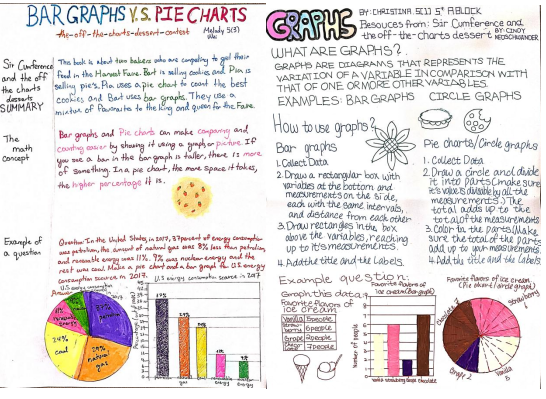 BAR GRAPHS V.S. PIE CHARTS
-the-off-the-charts-dessert-contest
Melody S(3)
Sir Cumference
and the off
the charts
desserts
SUMMARY
This book is about two bakers who are competing to get their
food in the Harvest Faire. Bart is selling cookies and Pia is
selling pie's. Pia uses a pie chart to count the best
cookies and Bart uses bar graphs. They use a
mixture of favourites to the king and queen for the Faire.
The
math
concept
Bar graphs and Pie charts can make comparing and
counting easier by showing it using a graph or picture. If
you see a bar in the bar graph is taller, there is more
of something. In a pie chart, the more space it takes,
the higher percentage it is.
Example of
a question
Question: In the United States, in 2017, 37 percent of energy consumption
was petroleum, the amount of natural gas was 8% less than petroleum,
and renewable energy was 11%. 9% was nuclear energy and the
rest was coal. Make a pie chart and a bar graph for U.S. energy
consumption source in 2017.
Answer:
U.S energy consumption
11%
renewable
energy
37%
petroleum
24%
coal
29%
natural
gas
U.S energy consumption source in 2017
37%
29%
24%
11%
9%
gas
energy
GRAPHS
BY: CHRISTINA. S(1) 5th A BLOCK
Resouces from: Sir Cumference and
the off-the-charts dessert BY: CINDY
NEUSCHWANDER
WHAT ARE GRAPHS?
GRAPHS ARE DIAGRAMS THAT REPRESENTS THE
VARIATION OF A VARIABLE IN COMPARISON WITH
THAT OF ONE OR MORE OTHER VARIABLES.
EXAMPLES: BAR GRAPHS CIRCLE GRAPHS
How to use graphs?
Bar graphs
1. Collect Data
2. Draw a rectangular box with
variables at the bottom and
measurements on the side,
each with the same intervals,
and distance from each other
3. Draw rectangles in the box
above the variables, reaching
up to it's measurements.
4. Add the title and the Labels.
Pie charts/Circle graphs
1. Collect Data
2. Draw a circle and divide
it into parts (make sure
it's value is divisible by all the
measurements.) The
total adds up to the
total of the measurements
3. Color in the parts (Make
sure the total of the parts
add up to your measurements
4. Add the title and the Labels.
Example question:
Graph this data:
Favorite flavors of
ice cream
Vanilla 5 people
Straw-
berry 6 people
Grape 2 people
Choco-
late 7 people
Favorite flavors of
ice cream (Bar graph)
Number of people
vanilla strawberry Grape chocolate
Favorite flavors of ice cream
(Pie chart/circle graph)
Chocolate 7
Strawberry
Grape 2
Vanilla
5